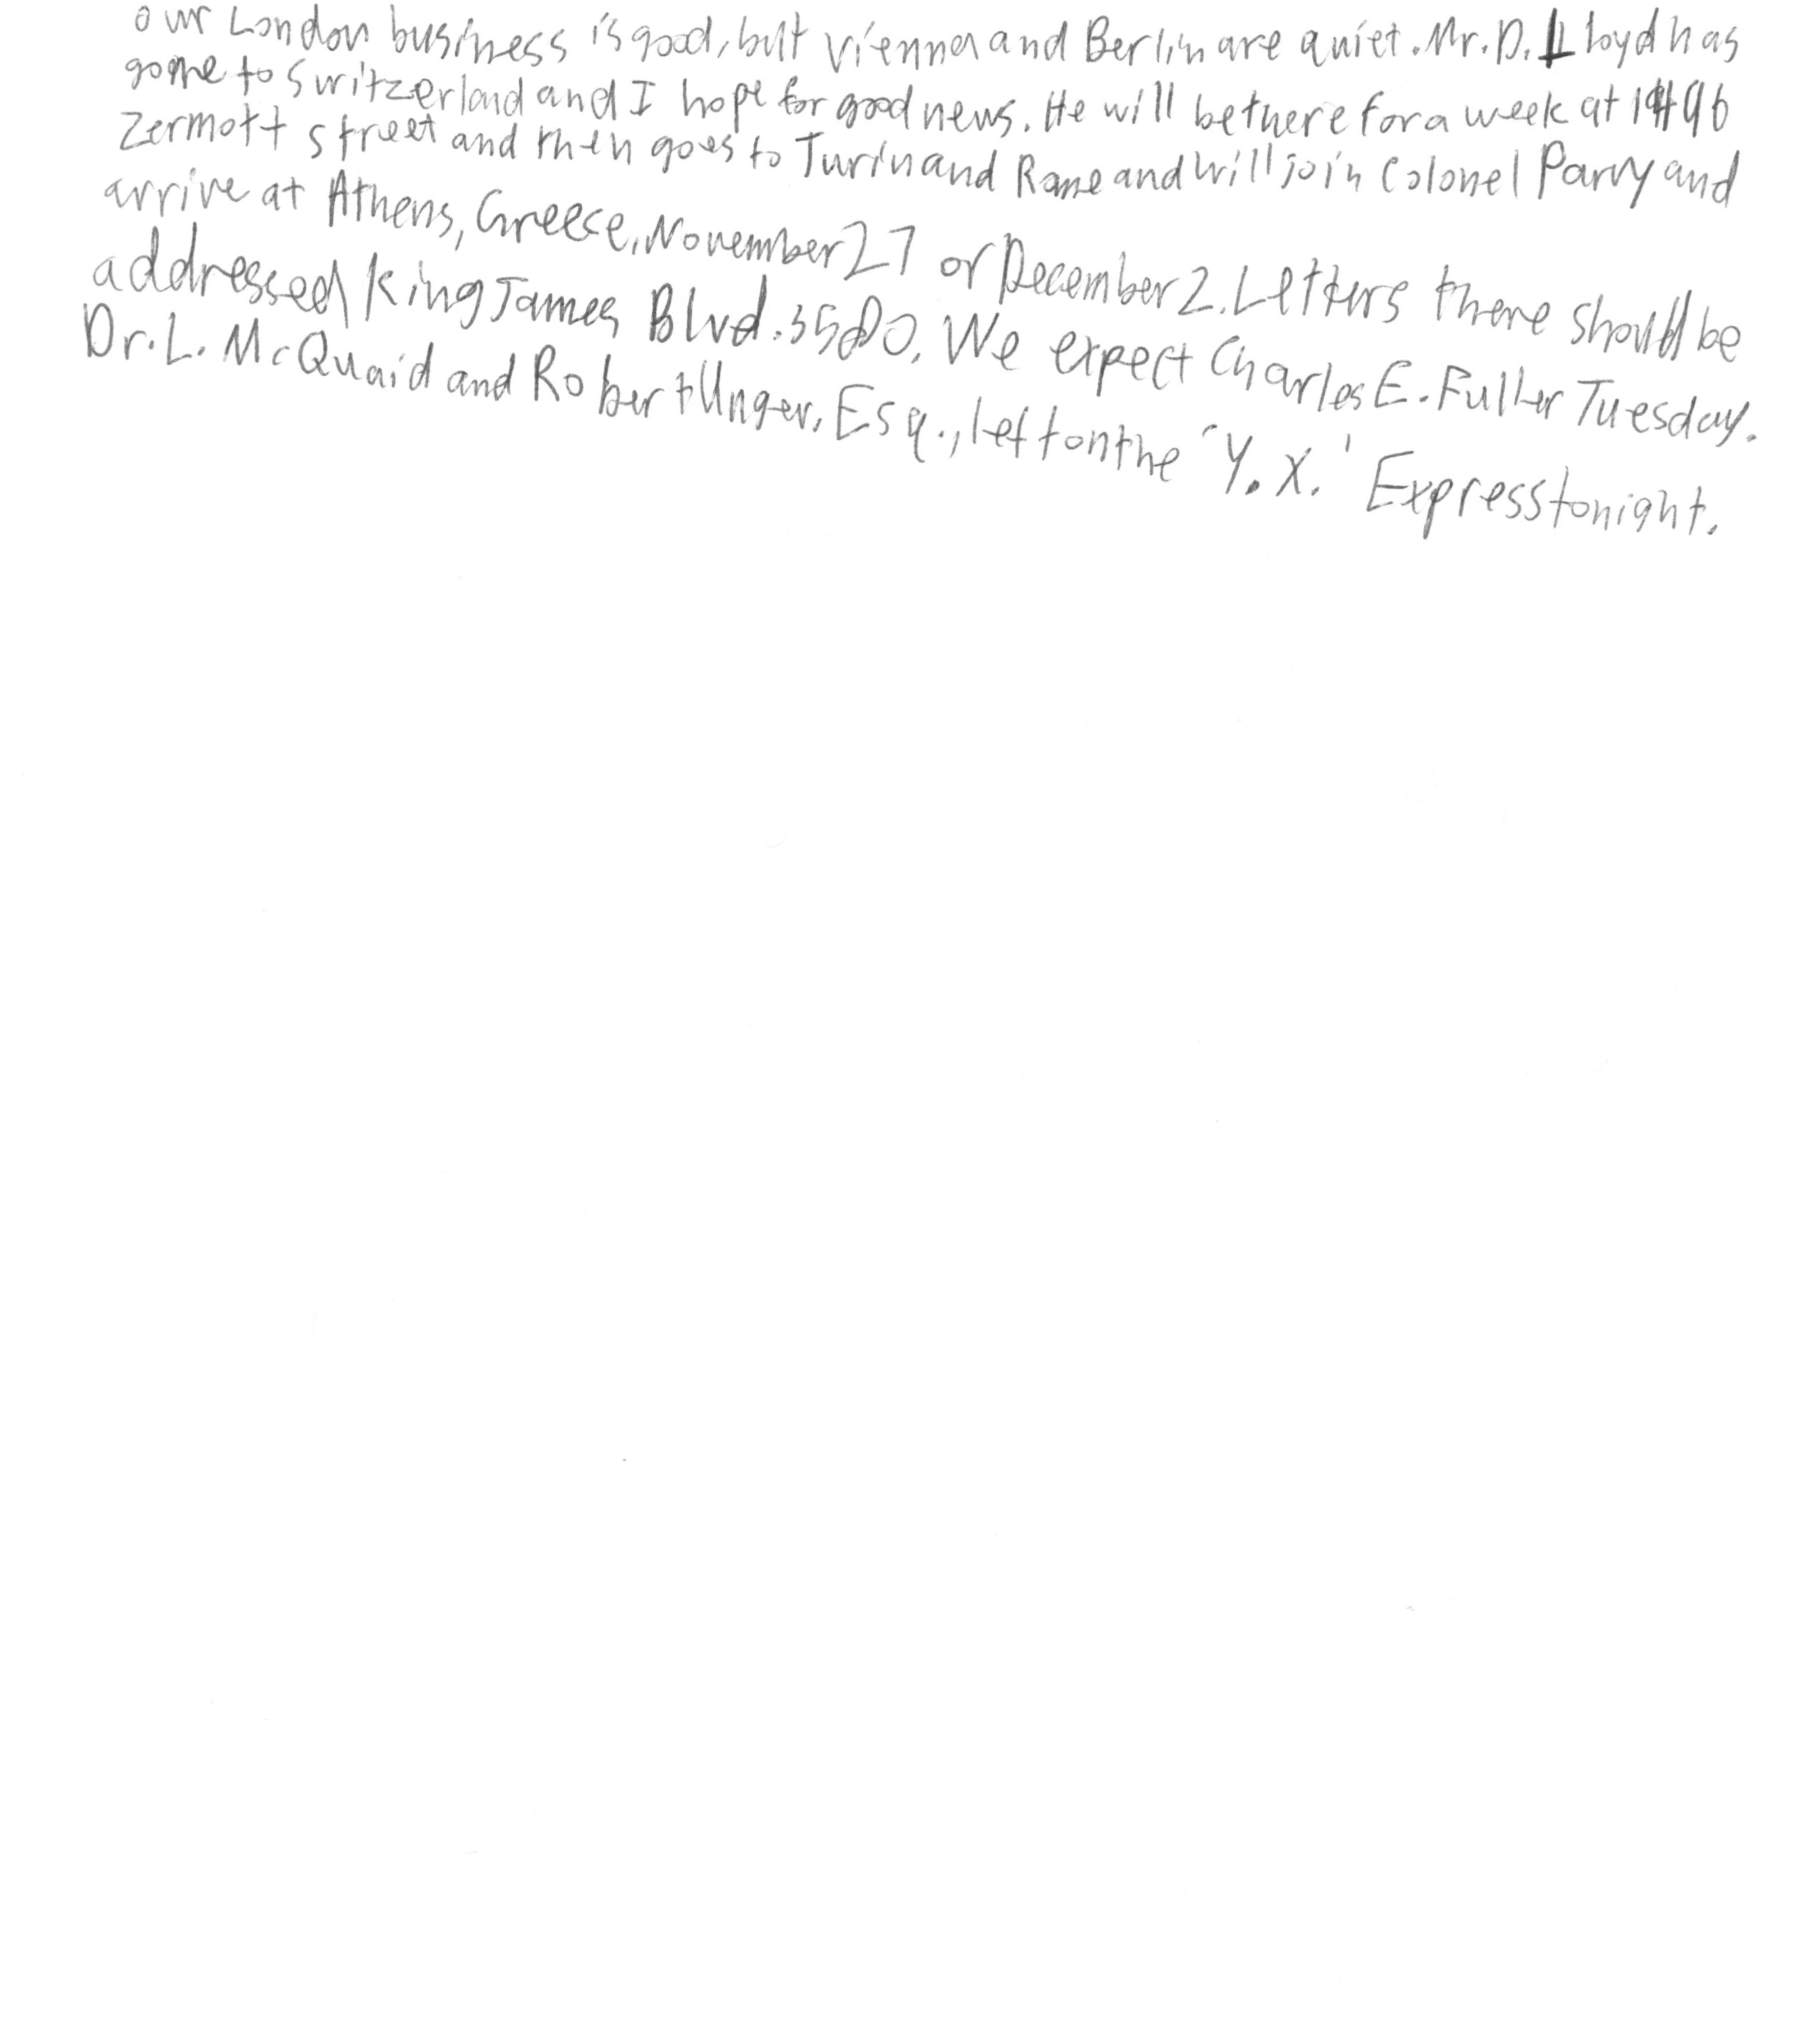 our London business is good, but Vienna and Berlin are quiet. Mr. D. Lloyd has
gone to Switzerland and I hope for good news. He will be there for a week at 1496
Zermott street and then goes to Turin and Rome and will join Colonel Parry and
arrive at Athens, Greece, November 27 or December 2. Letters there should be
addressed King James Blvd. 3580. We expect Charles E. Fuller Tuesday.
Dr. L. McQuaid and Robert Unger, Esq., left on the 'Y. X.' Express tonight.